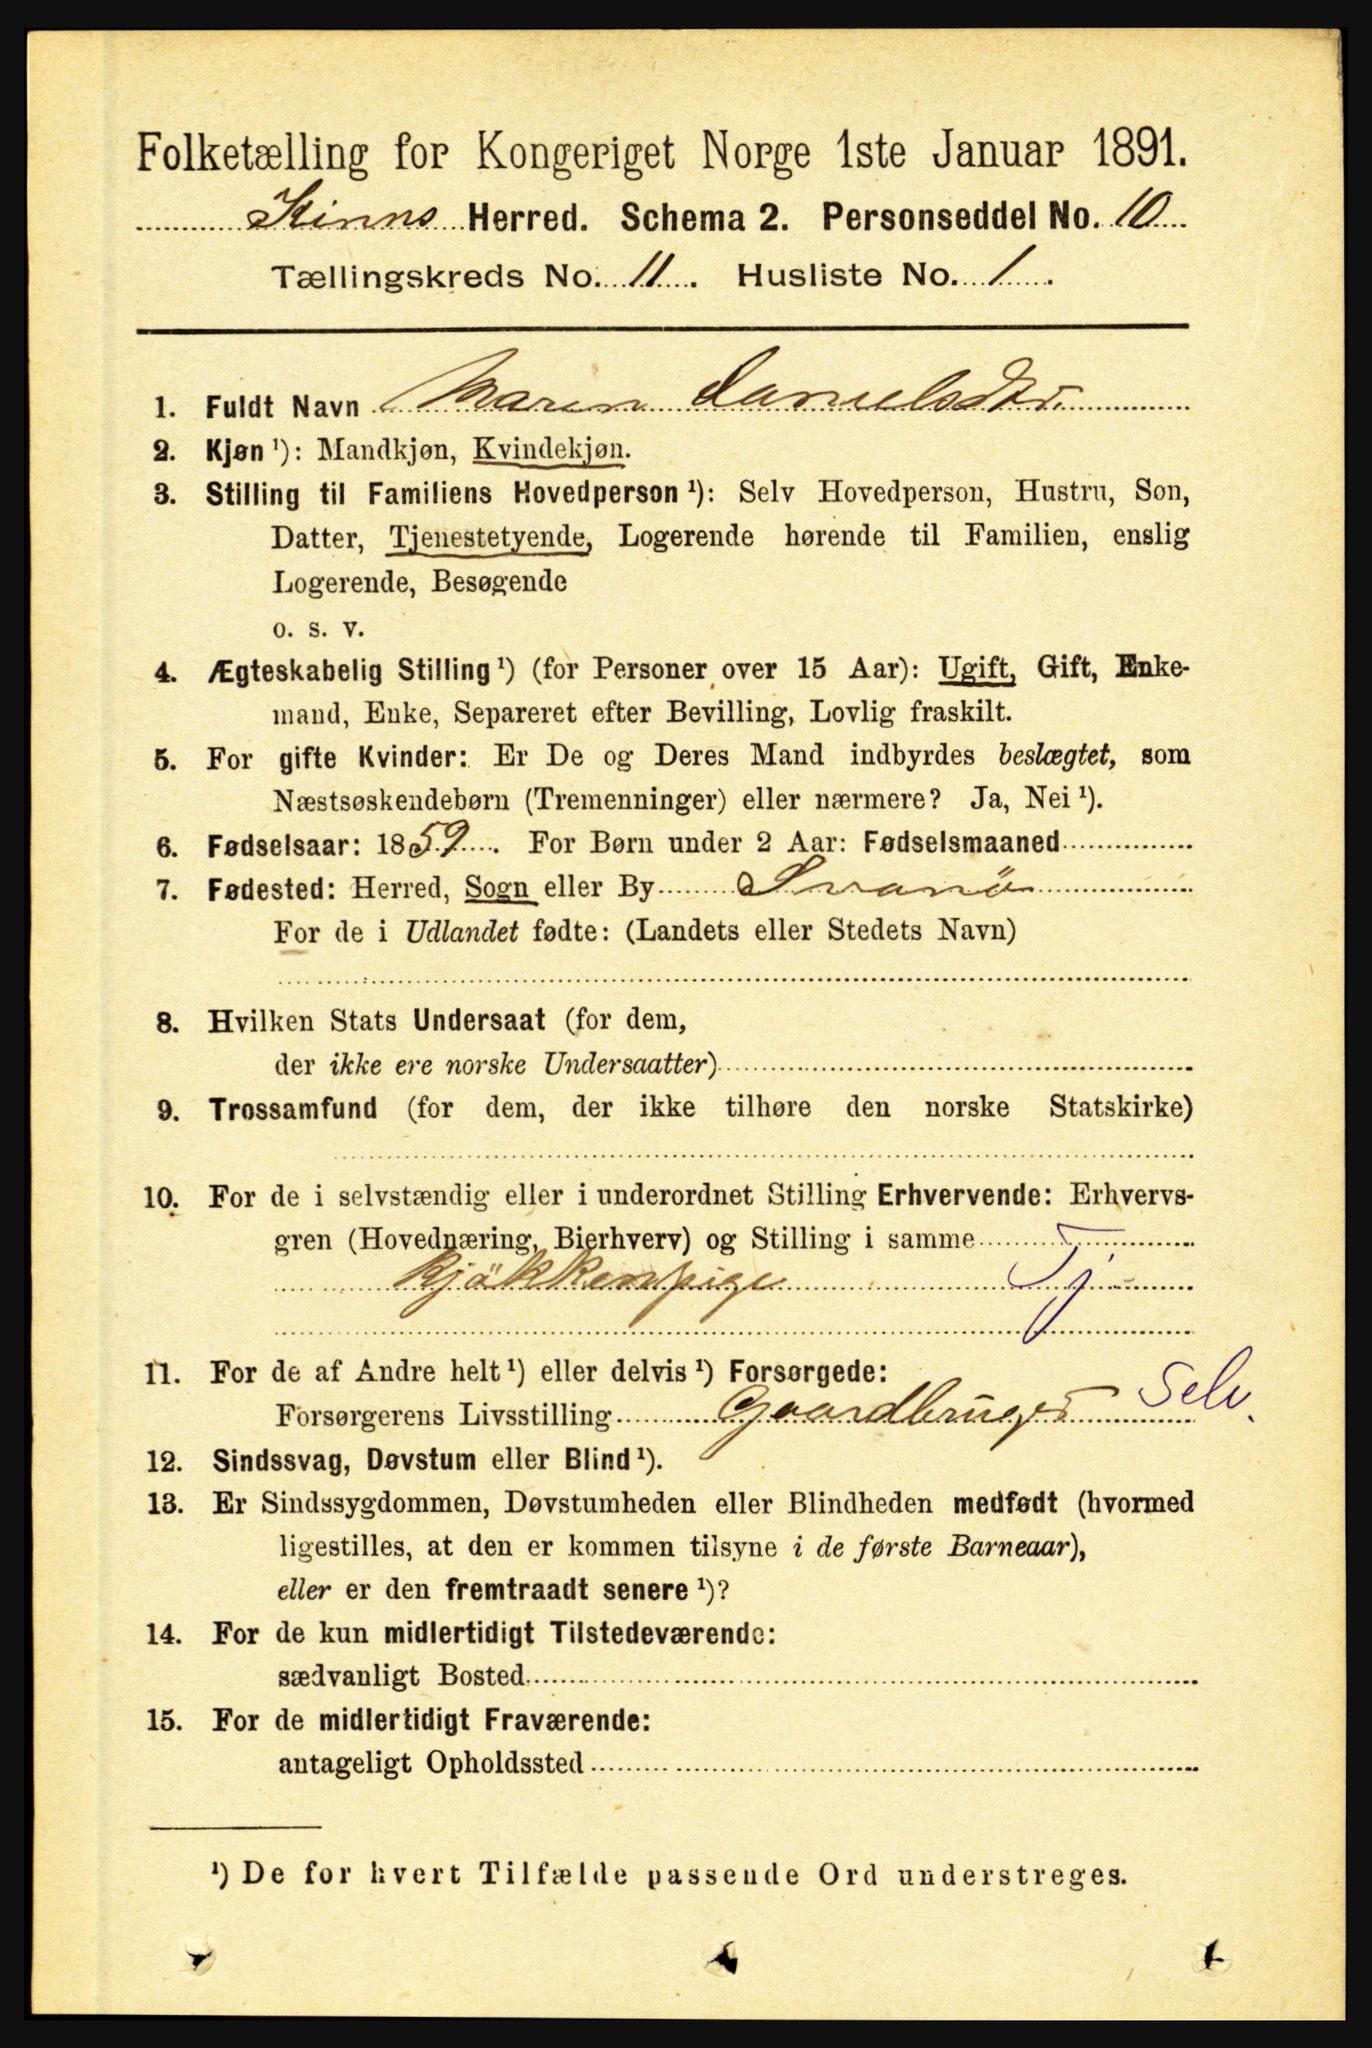 Folketælling for Kongeriget Norge 1ste Januar 1891.
Kinns Herred. Schema 2. Personseddel No. 10
Tællingskreds No. 11. Husliste No. 1.
1. Fuldt Navn Maren Danielsdtr.
2. Kjøn ¹): Mandkjøn, Kvindekjøn.
3. Stilling til Familiens Hovedperson ¹): Selv Hovedperson, Hustru, Søn,
Datter, Tjenestetyende, Logerende hørende til Familien, enslig
Logerende, Besøgende
o. s. v.
4. Ægteskabelig Stilling ¹) (for Personer over 15 Aar): Ugift, Gift, Enke-
mand, Enke, Separeret efter Bevilling, Lovlig fraskilt.
5. For gifte Kvinder: Er De og Deres Mand indbyrdes beslægtet, som
Næstsøskendebørn (Tremenninger) eller nærmere? Ja, Nei ¹).
6. Fødselsaar: 1859. For Børn under 2 Aar: Fødselsmaaned
7. Fødested: Herred, Sogn eller By Svanö
For de i Udlandet fødte: (Landets eller Stedets Navn)
8. Hvilken Stats Undersaat (for dem,
der ikke ere norske Undersaatter)
9. Trossamfund (for dem, der ikke tilhøre den norske Statskirke)
10. For de i selvstændig eller i underordnet Stilling Erhvervende: Erhvervs-
gren (Hovednæring, Bierhverv) og Stilling i samme
Kjökkenpige Tj
11. For de af Andre helt ¹) eller delvis ¹) Forsørgede:
Forsørgerens Livsstilling Gaardbruger Selv.
12. Sindssvag, Døvstum eller Blind ¹).
13. Er Sindssygdommen, Døvstumheden eller Blindheden medfødt (hvormed
ligestilles, at den er kommen tilsyne i de første Barneaar),
eller er den fremtraadt senere ¹)?
14. For de kun midlertidigt Tilstedeværende:
sædvanligt Bosted
15. For de midlertidigt Fraværende:
antageligt Opholdssted
¹) De for hvert Tilfælde passende Ord understreges.